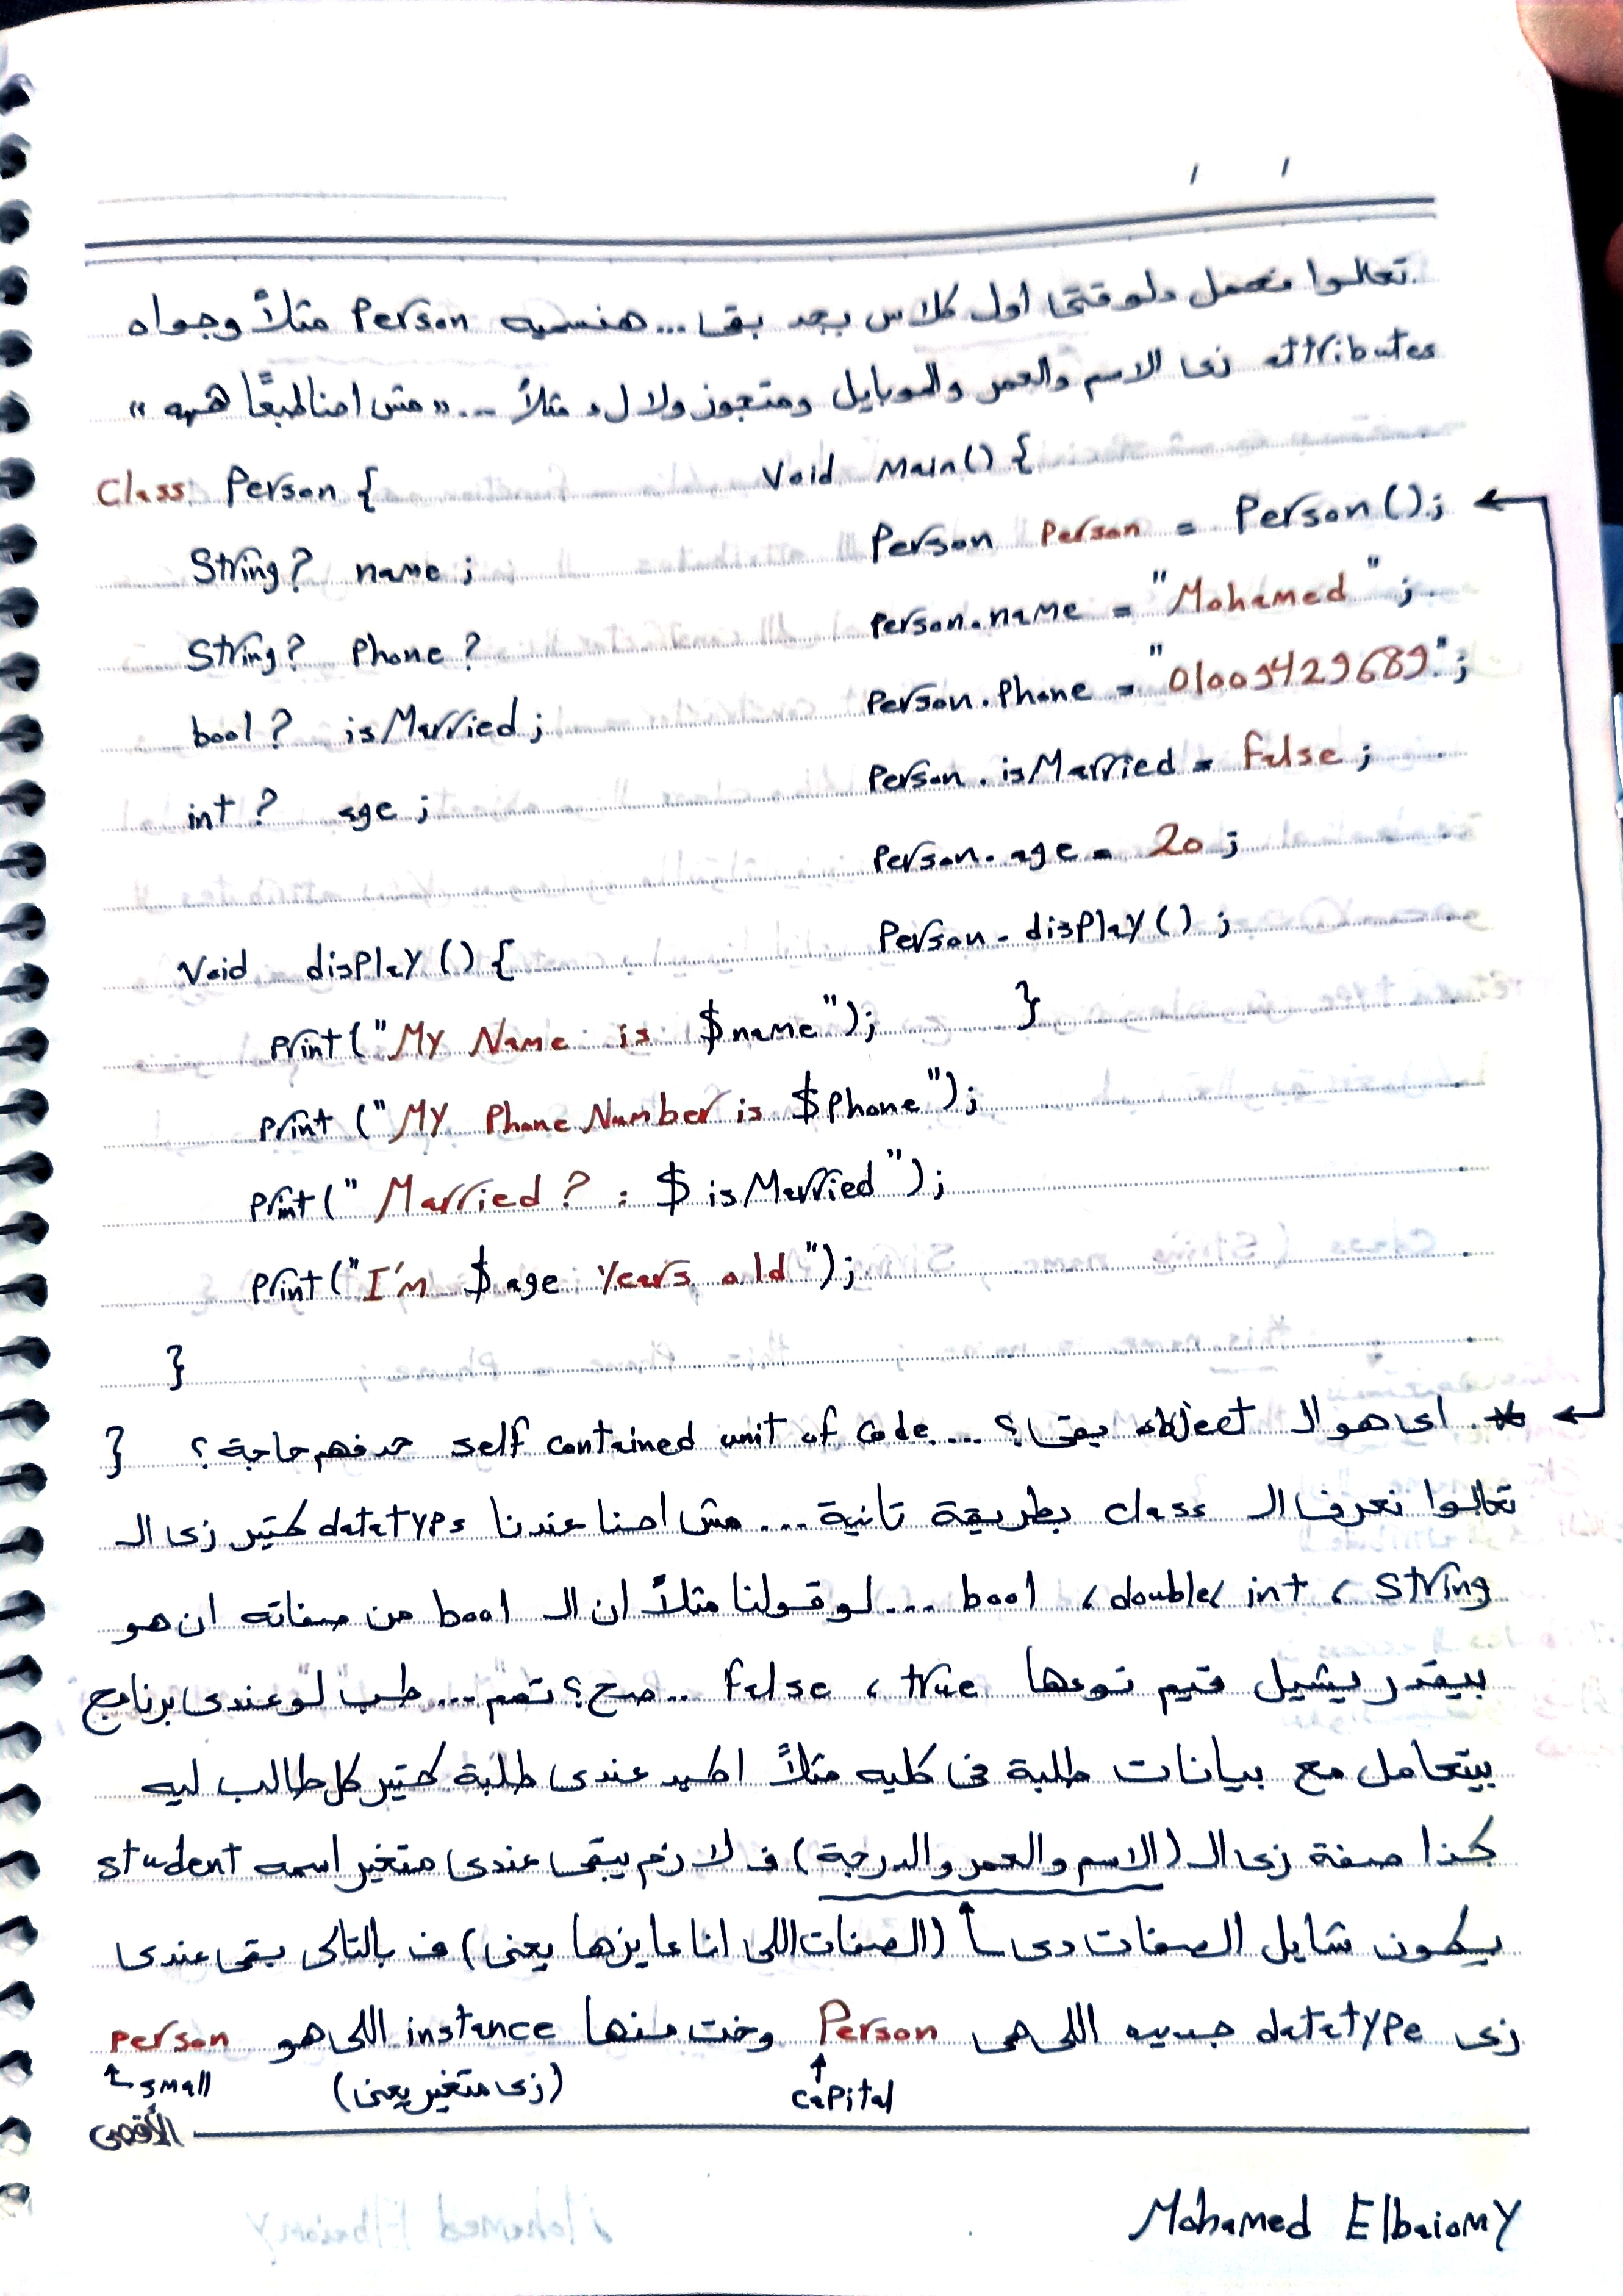 تعالوا نعمل دلوقتى اول كلاس بجد بقى... هنسميه Person مثلاً وجواه
attributes زى الاسم والعمر والموبايل ومتجوز ولا لء مثلاً ... "مش احنا طبعًا هيه"
Class Person {
String? name ;
String? Phone ?
bool? isMarried ;
int ? age ;
Void display () {
Print ("My Name is $name");
Print ("My Phone Number is $Phone");
Print (" Married ? : $ isMarried ");
Print ("I'm $ age Years old ");
}
}
Void Main () {
Person Person = Person () ;
Person.name = "Mohamed" ;
Person.Phone = "01009429689" ;
Person.isMarried = False ;
Person.age = 20 ;
Person.display () ;
}
* اى هو الـ object بقى؟ ... self contained unit of code حد فهم حاجة ؟
تعالوا نعرف الـ class بطريقة تانية ... مش احنا عندنا datatype كتير زى الـ
String ، int ، double ، bool ... لو قولنا مثلاً ان الـ bool من صفاته ان هو
بيقدر يشيل قيم نوعها true ، False .. صح؟ تمم ... طب لو عندى برنامج
بيتعامل مع بيانات طلبة فى كليه مثلاً اكيد عندى طلبة كتير كل طالب ليه
كذا صفة زى الـ (الاسم والعمر والدرجة) ف لازم يبقى عندى متغير اسمه student
يكون شايل الصفات دى (الصفات اللى انا عايزها يعنى) ف بالتالى بقى عندى
زى datatype جديده اللى هى Person وخت منها instance اللى هو Person
capital
(زى متغير يعنى)
small
الأقصى
Mohamed Elbaiomy